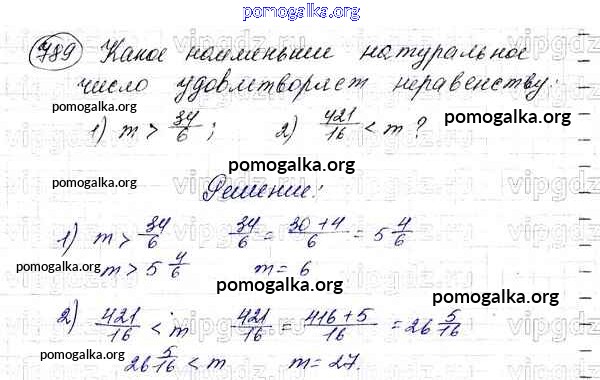 pomogalka.org
789 Какое наименьшее натуральное
число удовлетворяет неравенству:
pomogalka.org
1) m > 34/6 ; 2) 421/16 < m ?
pomogalka.org
pomogalka.org
Решение:
1) m > 34/6 34/6 = 30+4/6 = 5 4/6
pomogalka.org
m > 5 4/6 m = 6
pomogalka.org
pomogalka.org
2) 421/16 < m 421/16 = 416+5/16 = 26 5/16
pomogalka.org
26 5/16 < m m = 27.
pomogalka.org